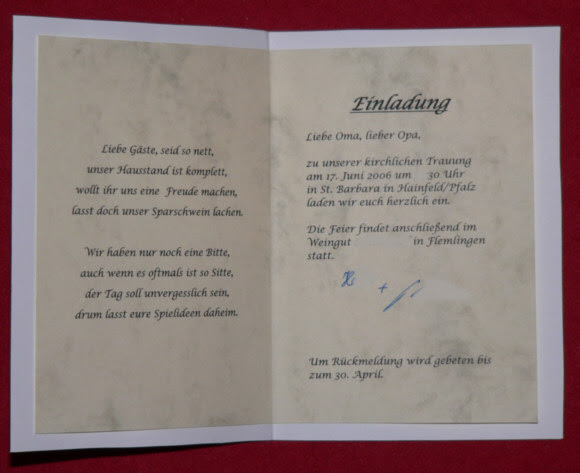 Liebe Gäste, seid so nett,
unser Hausstand ist komplett,
wollt ihr uns eine Freude machen,
lasst doch unser Sparschwein lachen.
Wir haben nur noch eine Bitte,
auch wenn es oftmals ist so Sitte,
der Tag soll unvergesslich sein,
drum lasst eure Spielideen daheim.
Einladung
Liebe Oma, lieber Opa,
zu unserer kirchlichen Trauung
am 17. Juni 2006 um 30 Uhr
in St. Barbara in Hainfeld/Pfalz
laden wir euch herzlich ein.
Die Feier findet anschließend im
Weingut in Flemlingen
statt.
+
Um Rückmeldung wird gebeten bis
zum 30. April.